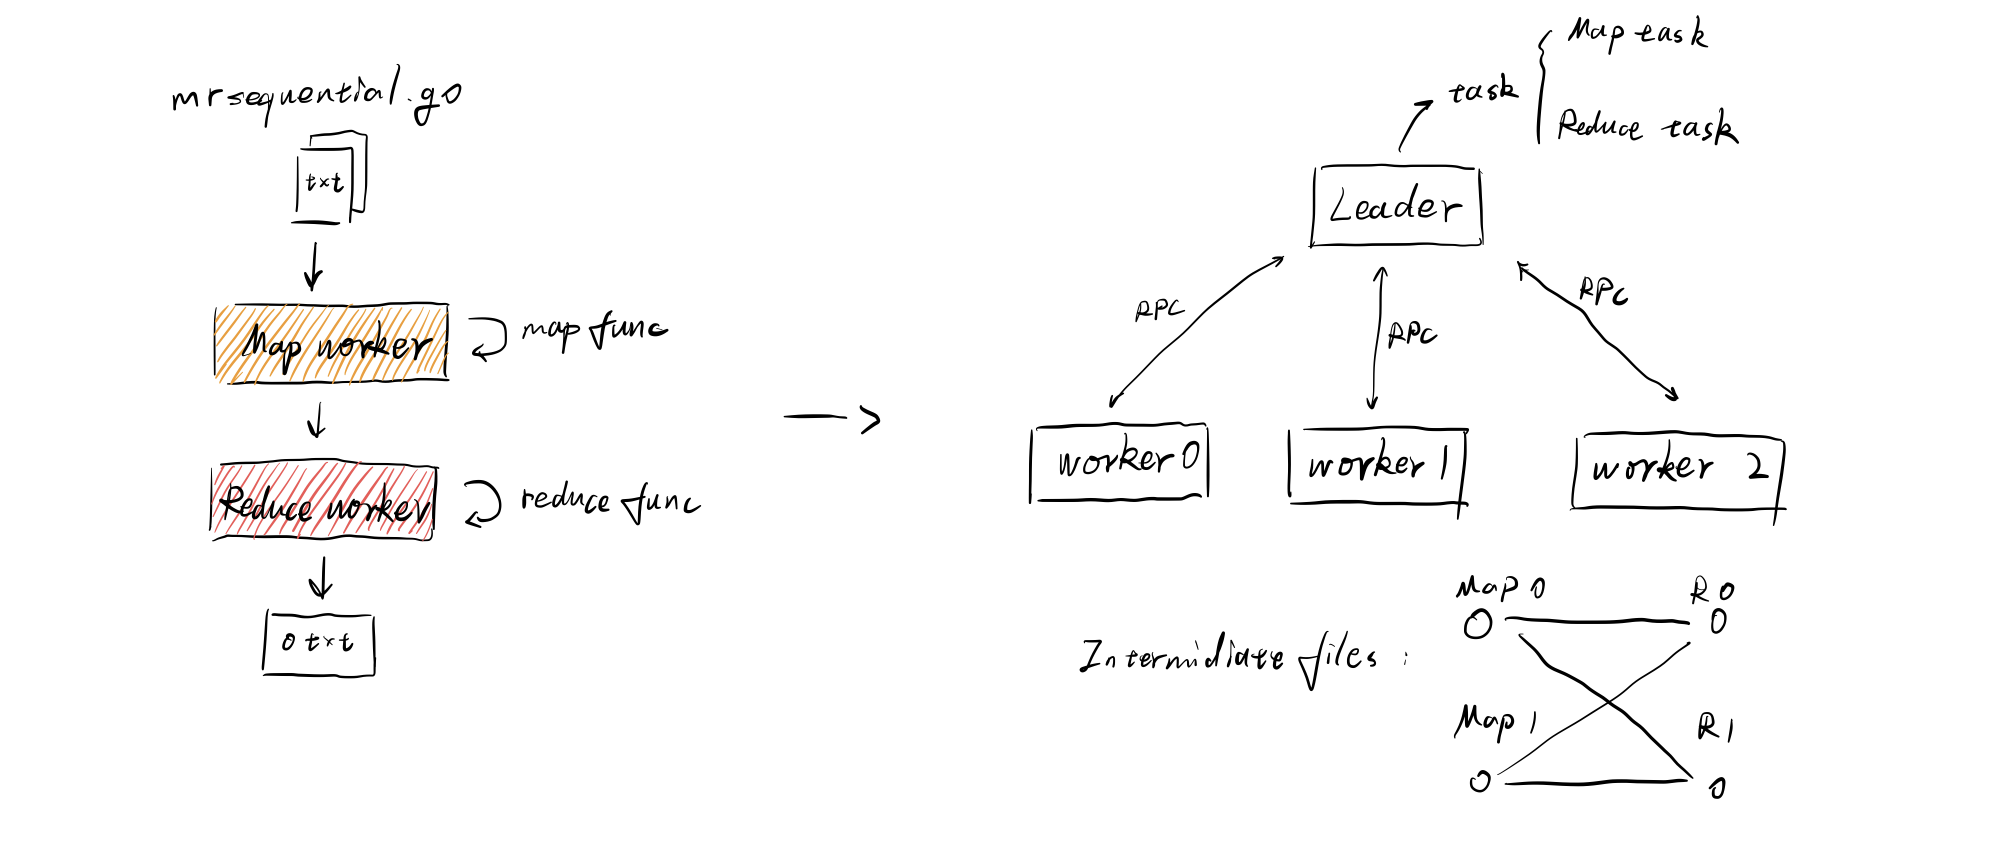 mrsequential.go
txt
Map worker
map func
Reduce worker
reduce func
o txt
task
Map task
Reduce task
Leader
RPC
RPC
RPC
worker 0
worker 1
worker 2
Intermidiate files :
Map 0
R0
Map 1
R1